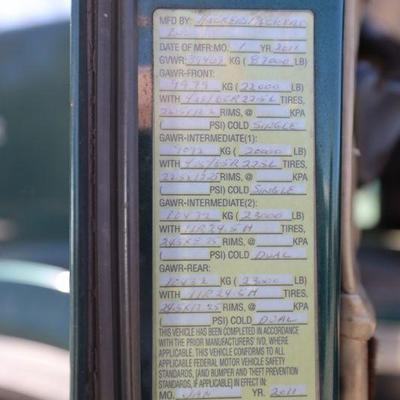 MFD BY:
DATE OF MFR: MO. 1 YR. 2011
GVWR: KG ( 87000 LB)
GAWR-FRONT:
9979 KG ( 22000 LB)
WITH 425/65R22.5L TIRES,
RIMS, @ KPA
( PSI) COLD SINGLE
GAWR-INTERMEDIATE(1):
9072 KG ( 20000 LB)
WITH 425/65R22.5L TIRES,
22.5X12.25 RIMS, @ KPA
( PSI) COLD SINGLE
GAWR-INTERMEDIATE(2):
10432 KG ( 23000 LB)
WITH 11R24.5H TIRES,
24.5X8.25 RIMS, @ KPA
( PSI) COLD DUAL
GAWR-REAR:
10432 KG ( 23000 LB)
WITH 11R24.5H TIRES,
RIMS, @ KPA
( PSI) COLD DUAL
THIS VEHICLE HAS BEEN COMPLETED IN ACCORDANCE
WITH THE PRIOR MANUFACTURERS' IVD, WHERE
APPLICABLE. THIS VEHICLE CONFORMS TO ALL
APPLICABLE FEDERAL MOTOR VEHICLE SAFETY
STANDARDS, [AND BUMPER AND THEFT PREVENTION
STANDARDS, IF APPLICABLE] IN EFFECT IN:
MO. JAN YR. 2011